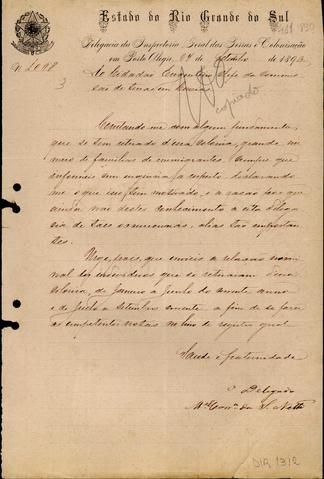 Estado do Rio Grande do Sul
Delegacia da Inspectoria Geral das Terras e Colonisação
em Porto Alegre, 24 de 1893
Nº 2098
3
Ao Cidadão Chefe da Commis
são de Terras em
copiado
Constando-me com algum fundamento,
que se tem retirado d'essa Colonia, grande nu
mero de familias de immigrantes. Cumpre que
informeis com urgencia a respeito, declarando
me o que isso tem motivado, e a rasão por que
ainda não destes conhecimento a esta Delega
cia de taes occurrencias, alias tão importan
tes.
Urge, pois, que envieis a relação nomi
nal dos individuos que se retirarão d'essa
Colonia, de Janeiro a Junho do corrente anno
e de Junho a Setembro corrente, a fim de se fazer
as competentes notas no livro de registro geral.
Saude e fraternidade
O Delegado
Mel
DIR 1312